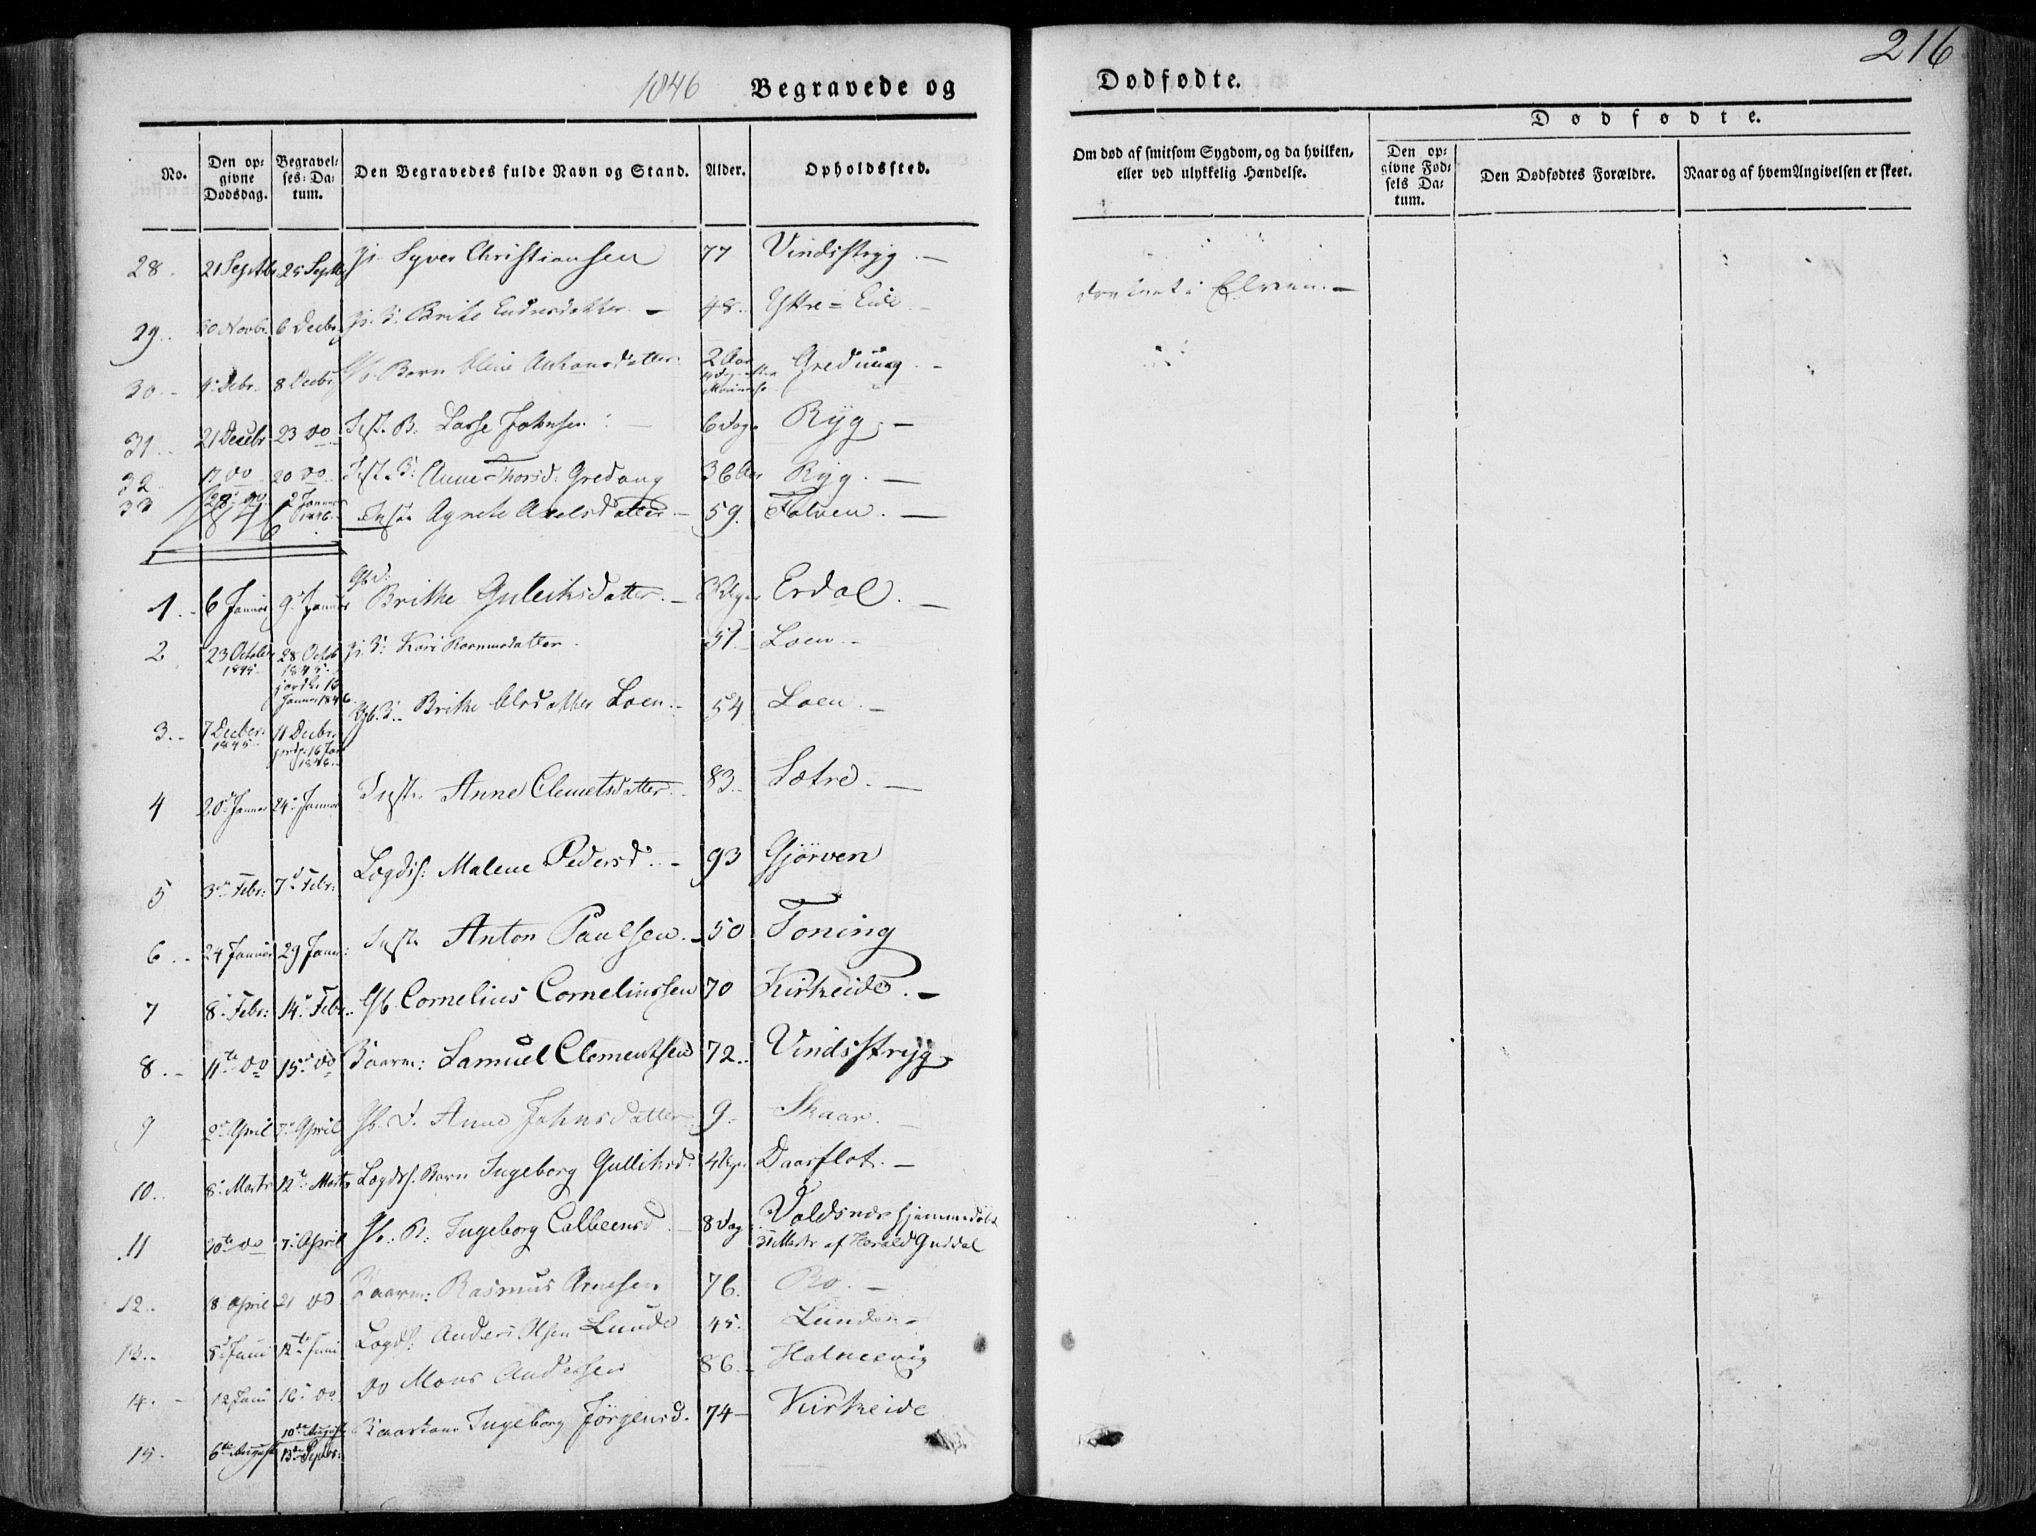 216
1846 Begravede og Dødfødte.
Dødfødte.
No.
Den opgivne Dødsdag.
Begravelses-Datum.
Den Begravedes fulde Navn og Stand.
Alder.
Opholdssted.
Om død af smitsom Sygdom, og da hvilken, eller ved ulykkelig Hændelse.
Den opgivne Fødsels Datum.
Den Dødfødtes Forældre.
Naar og af hvem Angivelsen er skeet.
28. 21 Septbr 25 Septbr Syver Christiansen 77 Vindsstryg. —
29. 6 Decbr Brite Endresdatter. — 48. Yttre-Eide
i Elven. —
30. 4 Debr. 8 Decbr Barn Oline Antonsdatter 2 Aar Gredung
31. 21 Decbr 23 do Inst. B. Lasse Johnsen 6 Dage Ryg. —
32 17 do 20 do Inst. K: Anne Thorsd: Gredung 36 Aar Ryg. —
33 28 do 2 Januar 1846. Agnete Axelsdatter — 59. Folven. —
1846
1. 6 Januar 9 Januar Brithe Guleiksdatter. — Erdal. —
2 23 October 1845. 28 Octob 1845. jordk: 16 Januar 1846. Kari Rasmusdatter. 51. Loen. —
3. 7 Decber 1845. 11 Decbr. jordp. 16 Jan 1846. Gb. K. Brithe Olsdatter Loen. 54 Loen. —
4 20 Januar 24 Januar Inst. Anne Clemetsdatter. 83. Sætre. —
5 3de Febr: 7de Febr: Logdsf: Malene Pedersd. — 93 Gjørven
6. 24 Januar 29 Januar: Inst. Anton Paulsen. 50 Toning
7 8 Febr: 14 Febr. Gb. Cornelius Cornelinssen 70 Kirkeide. —
8. 11te do 15 do Kaarm: Samuel Clementsen 72. Vindsstryg.
9 2 April 7 April Gb. D. Anne Johnsdatter 9. Skaar. —
10. 8 Marts 12te Marts Logdsf. Barn Ingeborg Gulliksd. 4 Uger Daarflot. —
11 30te do 7 April Gb. B: Ingeborg Colbeensd. 8 Dag Voldsnæs hjemmedøbt 31 Marts af Harald Guddal
12. 18 April 21 do Kaarm: Rasmus Arnesen 76. Bø. —
13. 8 Juni 12te Juni Logdsf: Anders Olsen Lunde 45. Lunden
14. 12 Juni 16 do do Mons Andersen 86. Holnesvig
15. 6te August 10de August 13de Septbr: Kaarkone Ingeborg Jörgensd. 74 — Kirkeide